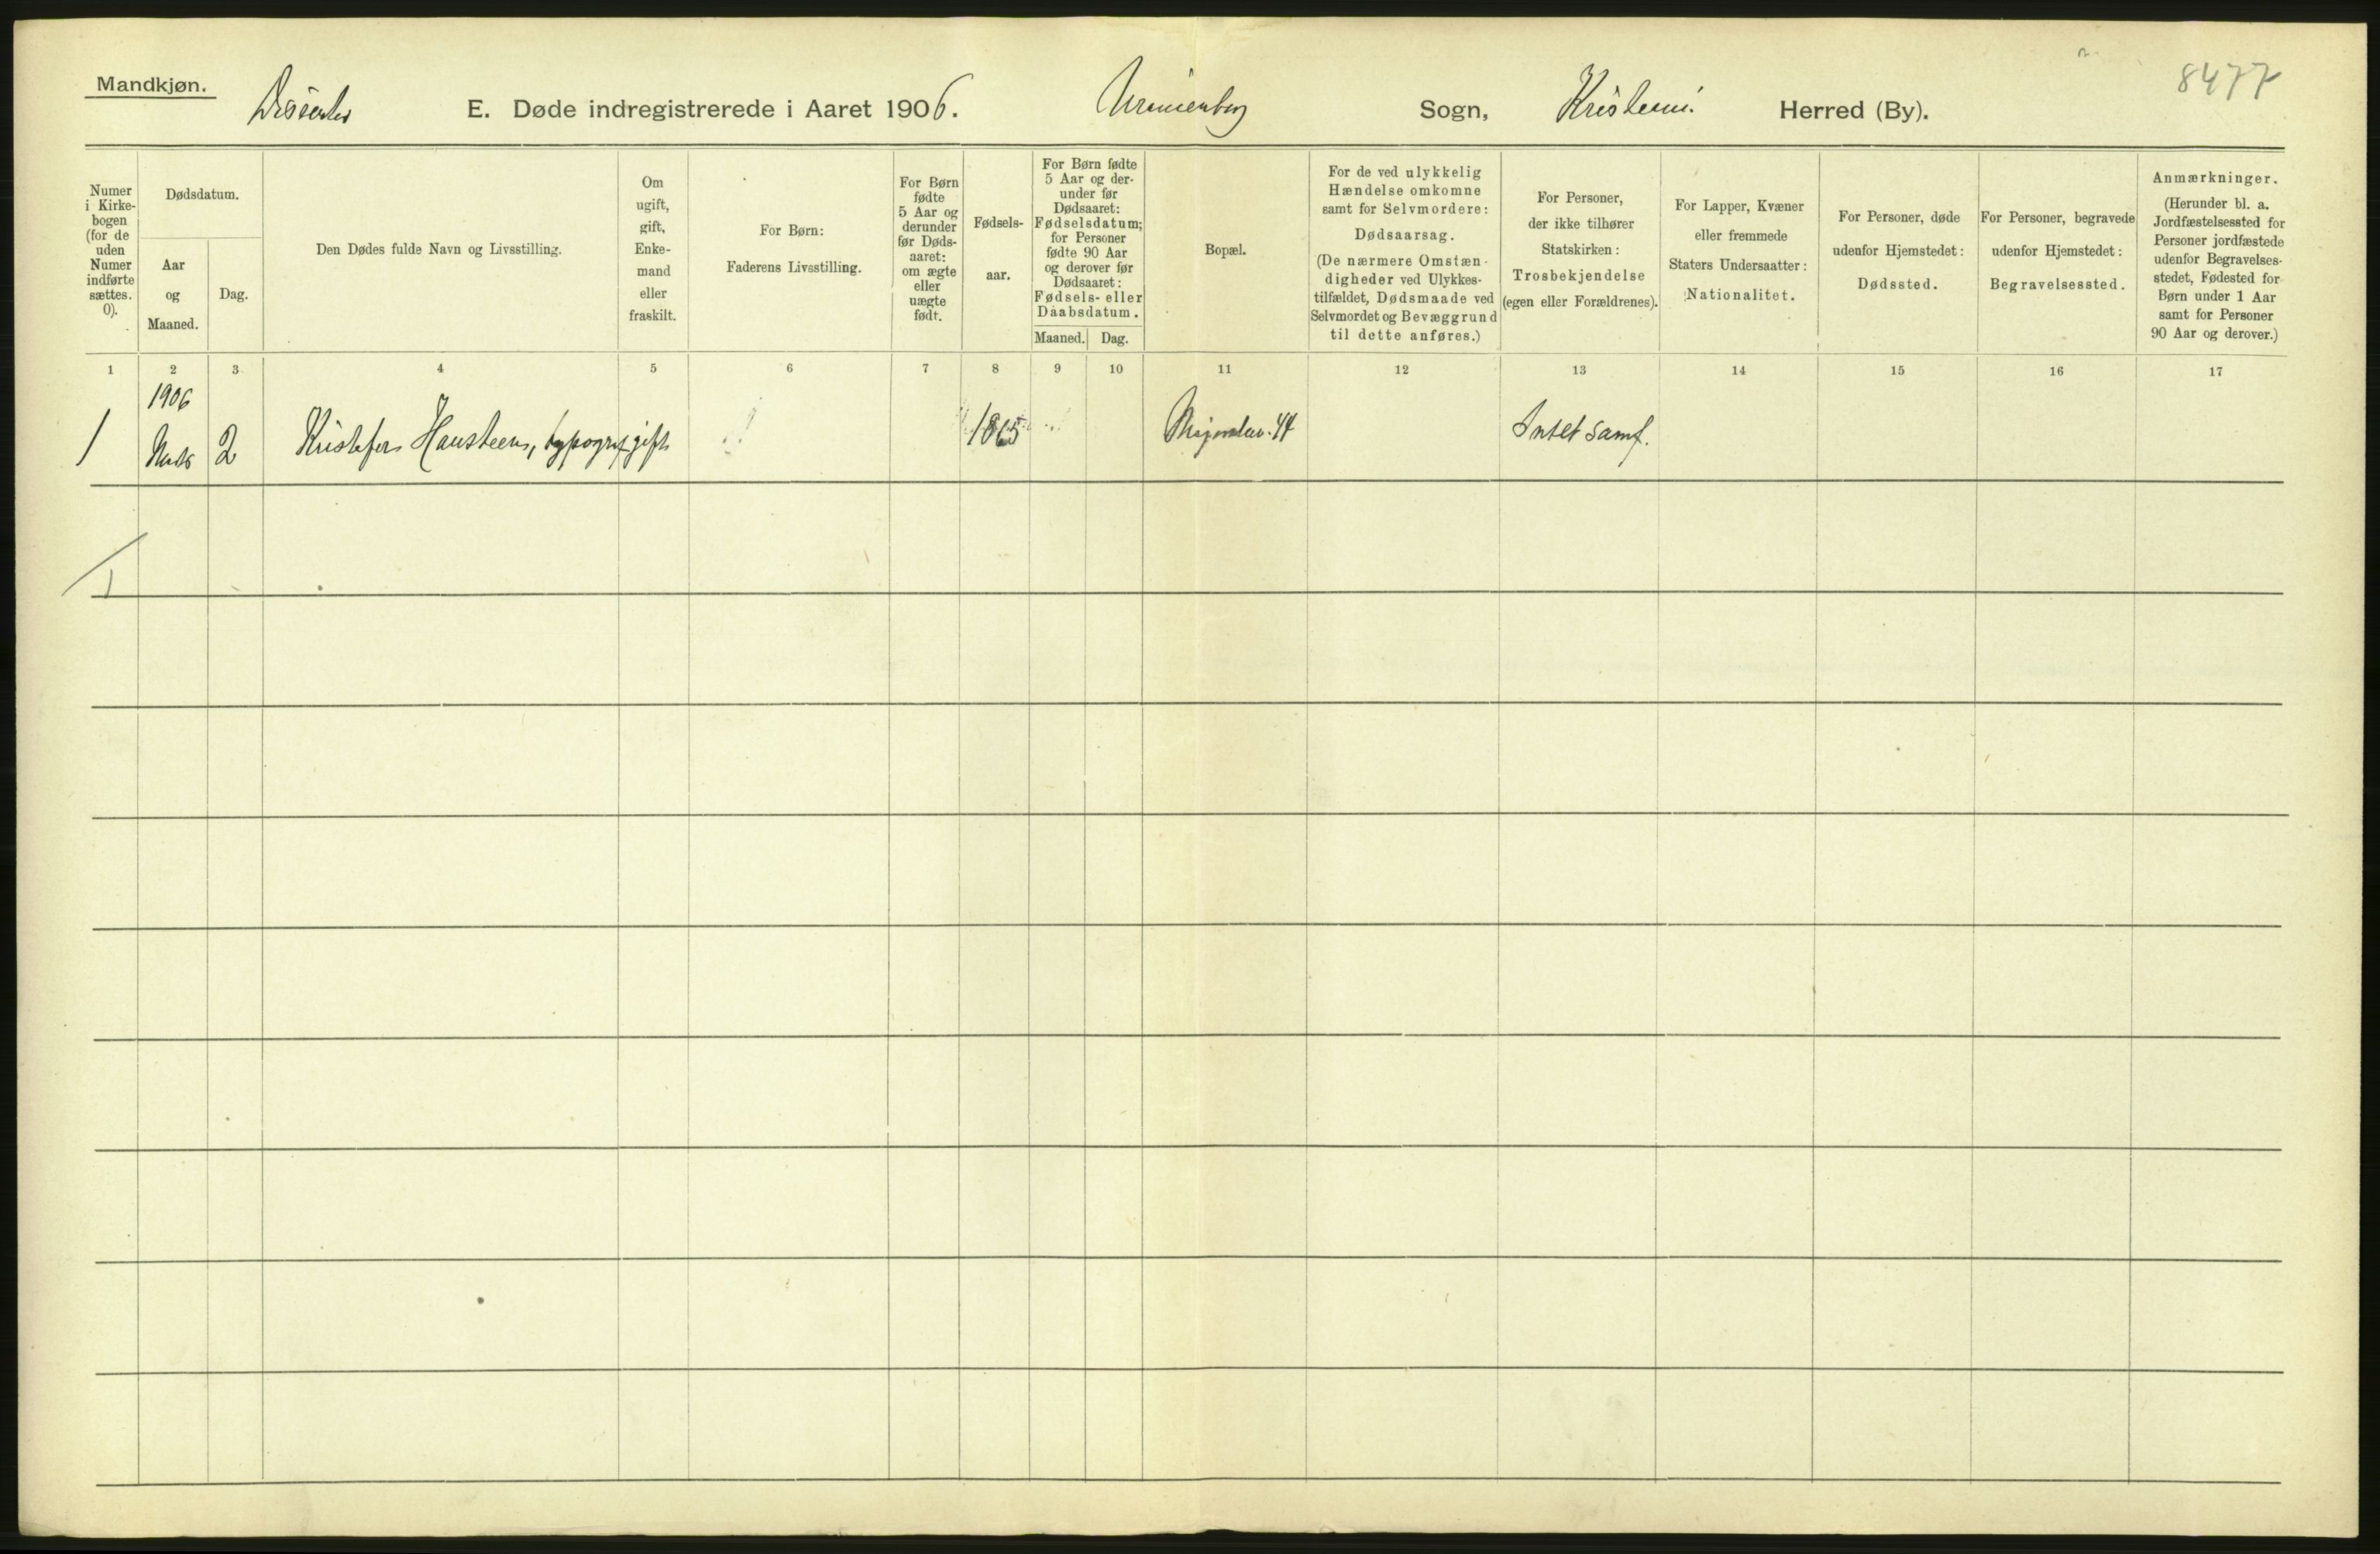 8477
Mandkjøn.
Dissenter E. Døde indregistrerede i Aaret 1906. Uranienborg Sogn, Kristiania Herred (By).
Numer i Kirkebogen (for de uden Numer indførte sættes. 0).
Dødsdatum.
Aar og Maaned.
Dag.
Den Dødes fulde Navn og Livsstilling.
Om ugift, gift, Enkemand eller fraskilt.
For Børn: Faderens Livsstilling.
For Børn fødte 5 Aar og derunder før Dødsaaret: om ægte eller uægte født.
Fødselsaar.
For Børn fødte 5 Aar og derunder før Dødsaaret: Fødselsdatum; for Personer fødte 90 Aar og derover før Dødsaaret: Fødsels- eller Daabsdatum.
Maaned. Dag.
Bopæl.
For de ved ulykkelig Hændelse omkomne samt for Selvmordere: Dødsaarsag. (De nærmere Omstændigheder ved Ulykkestilfældet, Dødsmaade ved Selvmordet og Bevæggrund til dette anføres.)
For Personer, der ikke tilhører Statskirken: Trosbekjendelse (egen eller Forældrenes).
For Lapper, Kvæner eller fremmede Staters Undersaatter: Nationalitet.
For Personer, døde udenfor Hjemstedet: Dødssted.
For Personer, begravede udenfor Hjemstedet: Begravelsessted.
Anmærkninger. (Herunder bl. a. Jordfæstelsessted for Personer jordfæstede udenfor Begravelsesstedet, Fødested for Børn under 1 Aar samt for Personer 90 Aar og derover.)
1 2 3 4 5 6 7 8 9 10 11 12 13 14 15 16 17
1906
1 Mars 2 Kristofer Hansteen, typograf gift 1865 44 Intet samf.
1